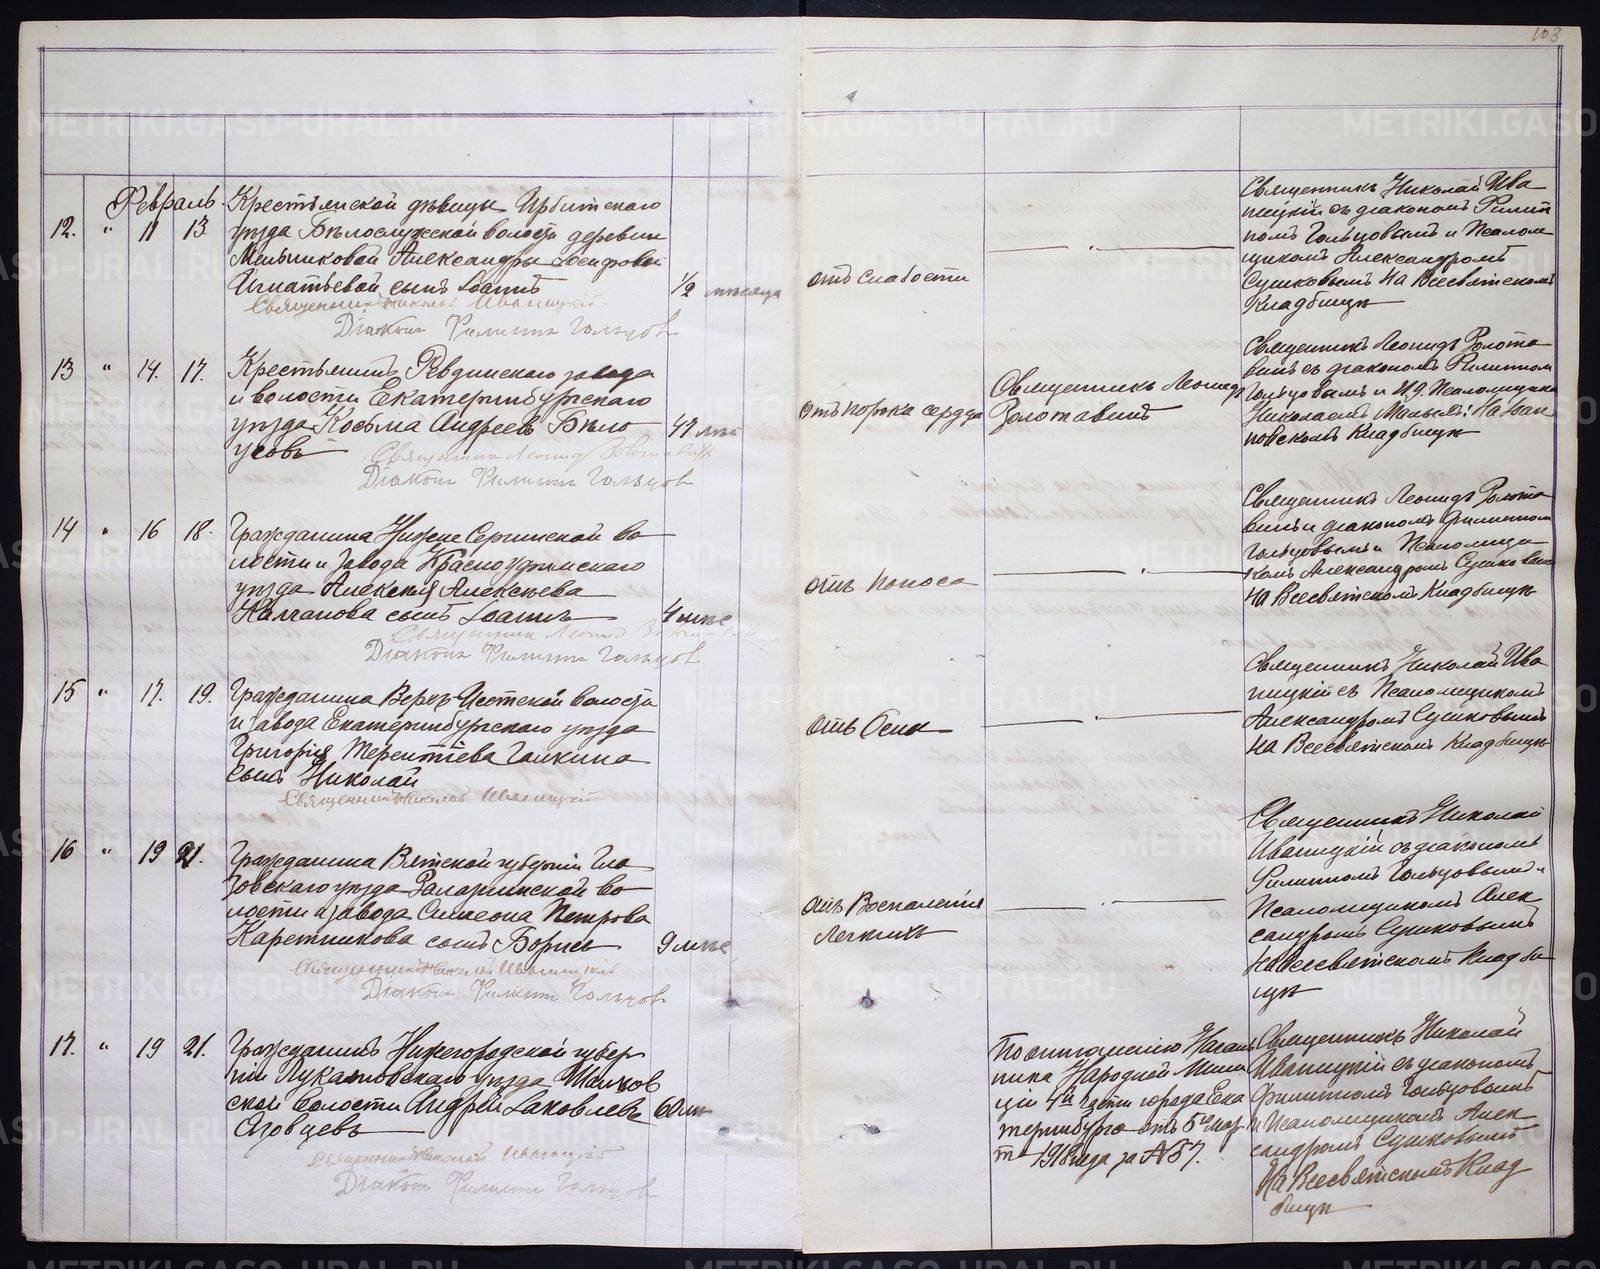 103
Февраль
12. " 11 13. Крестьянской дѣвицы Ирбитскаго
уѣзда Бѣлослудской волости деревни
Мельниковой Александры Іосифовой
Игнатьевой сынъ Іоаннъ
1/2 мѣсяца
Священникъ Николай Иваницкій.
Діаконъ Филиппъ Гольцов
отъ слабости
Священникъ Николай Ива
ницкій съ діакономъ Филип
помъ Гольцовымъ и Псалом
щикомъ Александромъ
Сушковымъ на Всесвятскомъ
Кладбищѣ
13 " 14. 17. Крестьянинъ Ревдинскаго завода
и волости Екатеринбургскаго
уѣзда Косьма Андреевъ Бѣло
усовъ
47 лѣт
Священник Леонид Золотавин
Діаконъ Филиппъ Гольцов
отъ порока сердца
Священникъ Леонидъ
Золотавинъ
Священникъ Леонидъ Золота
винъ съ діакономъ Филиппом
Гольцовымъ и И. д. Псаломщика
Николаемъ Малым: На Іоан
новскомъ Кладбищѣ
14 " 16 18. Гражданина Нижне Сергинской во
лости и Завода Красноуфимскаго
уѣзда Алексѣя Алексѣева
Калганова сынъ Іоаннъ
4 мѣс
Священник Леонид Золотавин
Діаконъ Филиппъ Гольцов
отъ поноса
Священникъ Леонидъ Золота
винъ и діакономъ Филиппом
Гольцовымъ и Псаломщи
комъ Александромъ Сушковым
на Всесвятскомъ Кладбищѣ
15 " 17. 19. Гражданина Верхъ-Исетской волости
и завода Екатеринбургскаго уѣзда
Григорія Терентіева Галкина
сынъ Николай
Священникъ Николай Иваницкій
отъ Оспы
Священникъ Николай Ива
ницкій съ Псаломщикомъ
Александромъ Сушковымъ
на Всесвятскомъ Кладбищѣ
16 " 19 21. Гражданина Вятской губерніи Гла
зовскаго уѣзда Залазнинской во
лости и завода Симеона Петрова
Каретникова сынъ Борисъ
9 мѣс
Священникъ Николай Иваницкій
Діаконъ Филиппъ Гольцов
отъ Воспаленія
Легкихъ
Священникъ Николай
Иваницкій съ діакономъ
Филиппомъ Гольцовым и
Псаломщикомъ Алек
сандромъ Сушковымъ
на Всесвятскомъ Кладби
щѣ
17. " 19 21. Гражданинъ Нижегородской губер
ніи Лукояновскаго уѣзда
ской волости Андрей Іаковлевъ
60 лѣт
Священникъ Николай Иваницкій
Діаконъ Филиппъ Гольцов
По отношенію Началь
ника Народной Мили
ціи 4й части города Ека
теринбурга отъ 5го мар
т 1918 года за № 57.
Священникъ Николай
Иваницкій съ діакономъ
Филиппомъ Гольцовымъ
и Псаломщикомъ Алек
сандромъ Сушковымъ
На Всесвятскомъ Клад
бищѣ
METRIKI.GASO-URAL.RU